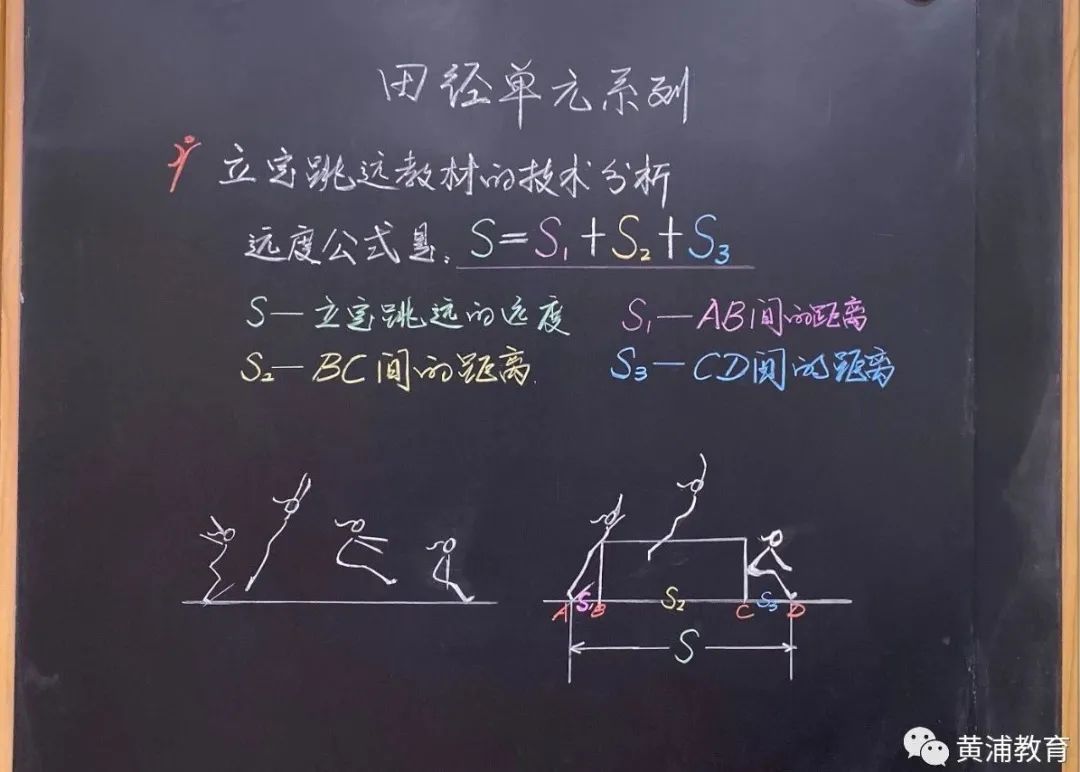 田径单元系列
立定跳远教材的技术分析
远度公式是: S=S₁+S₂+S₃
S—立定跳远的远度 S₁—AB间的距离
S₂—BC间的距离 S₃—CD间的距离
A S₁ B S₂ C S₃ D
S
黄浦教育